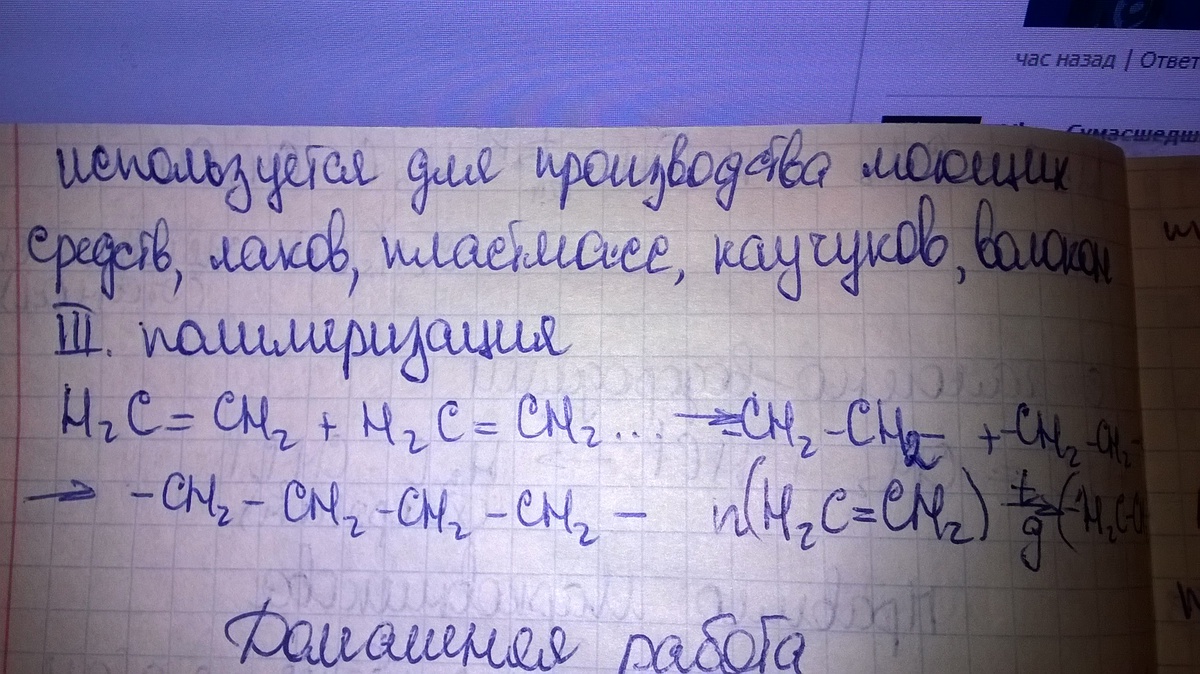 час назад | Ответ
Сумасшедш
используется для производства моющих
средств, лаков, пластмасс, каучуков, волокон
III. полимеризация
H₂C = CH₂ + H₂C = CH₂... → -CH₂-CH₂- + -CH₂-CH₂-
→ -CH₂-CH₂-CH₂-CH₂- n(H₂C=CH₂) (-H₂C-C
Домашняя работа